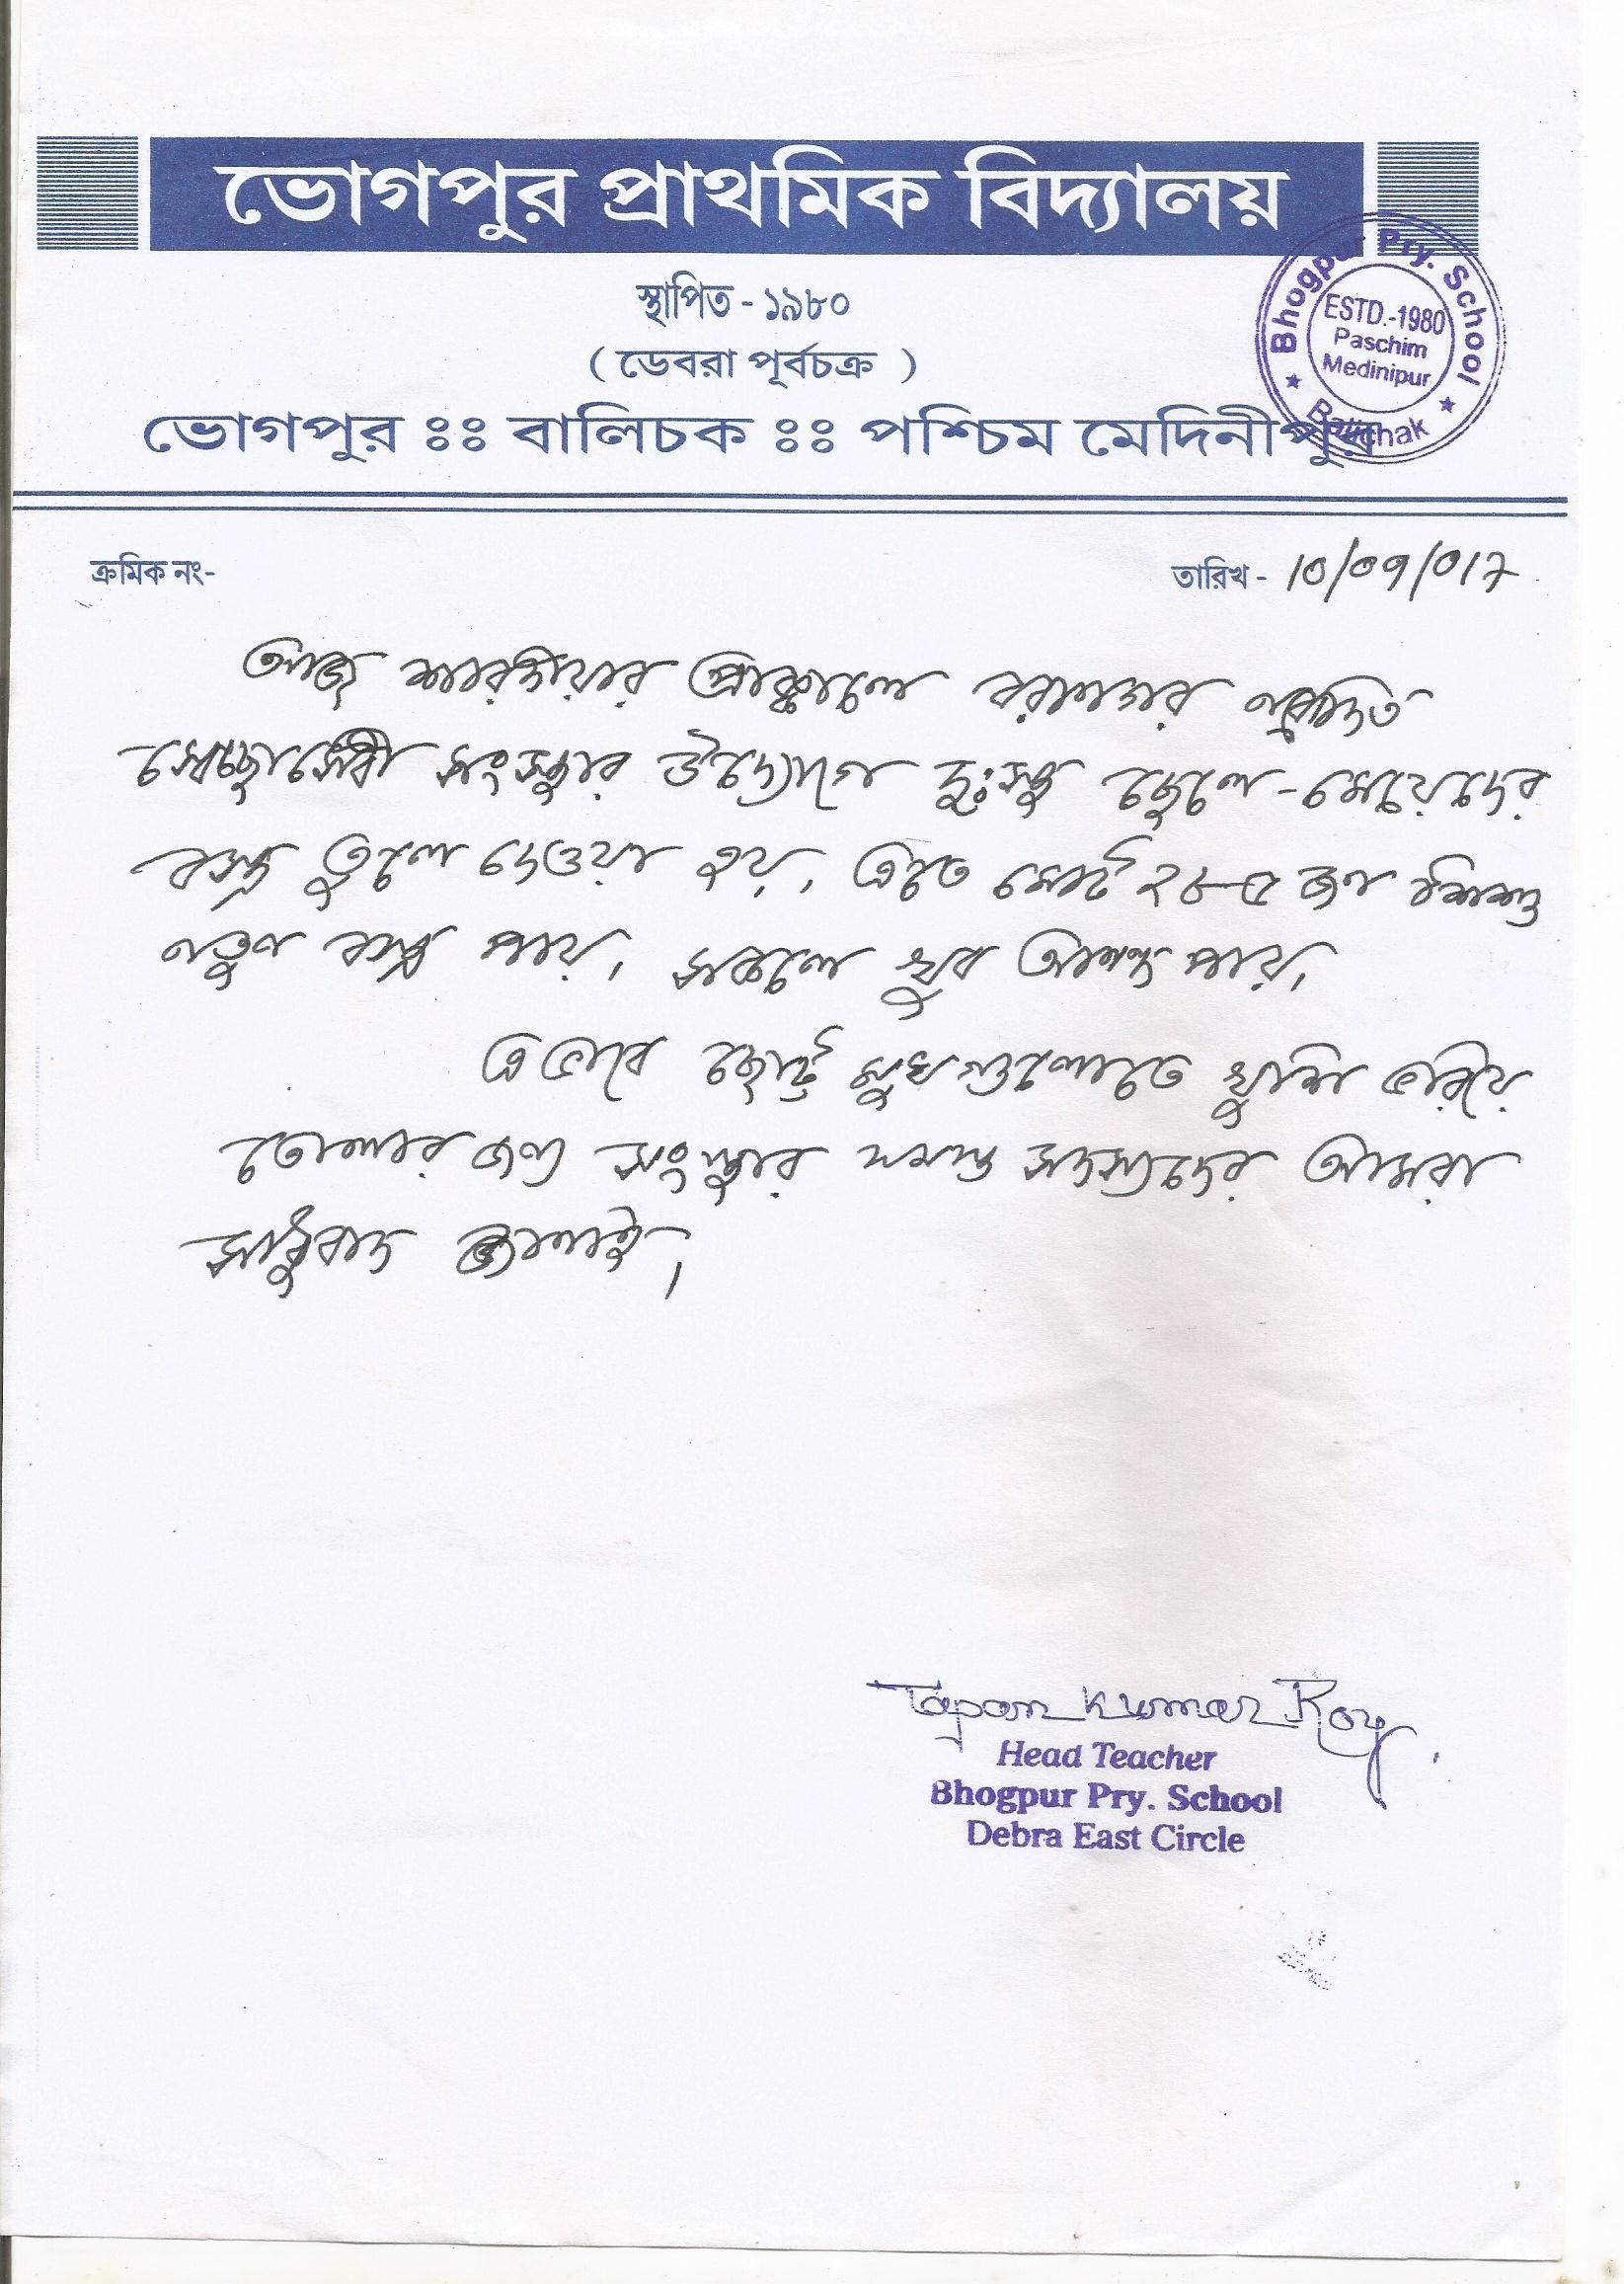 ভোগপুর প্রাথমিক বিদ্যালয়
স্থাপিত - ১৯৮০
( ডেবরা পূর্বচক্র )
ভোগপুর ঃঃ বালিচক ঃঃ পশ্চিম মেদিনীপুর
Bhogpur Pry. School
ESTD.-1980
Paschim
Medinipur
Balichak
ক্রমিক নং-
তারিখ - 10/09/017
আজ শারদীয়ার প্রাক্কালে বরানগর
স্বেচ্ছাসেবী সংস্থার উদ্যোগে দুঃস্থ ছেলে-মেয়েদের
বস্ত্র তুলে দেওয়া হয়। এতে মোট ২৮৫ জন শিশু
নতুন বস্ত্র পায়। সকলে খুব আনন্দ পায়।
এভাবে ছোট্ট মুখগুলোতে খুশি ভরিয়ে
তোলার জন্য সংস্থার সমস্ত সদস্যদের আমরা
সাধুবাদ জানাই।
Tapan Kumar Roy.
Head Teacher
Bhogpur Pry. School
Debra East Circle